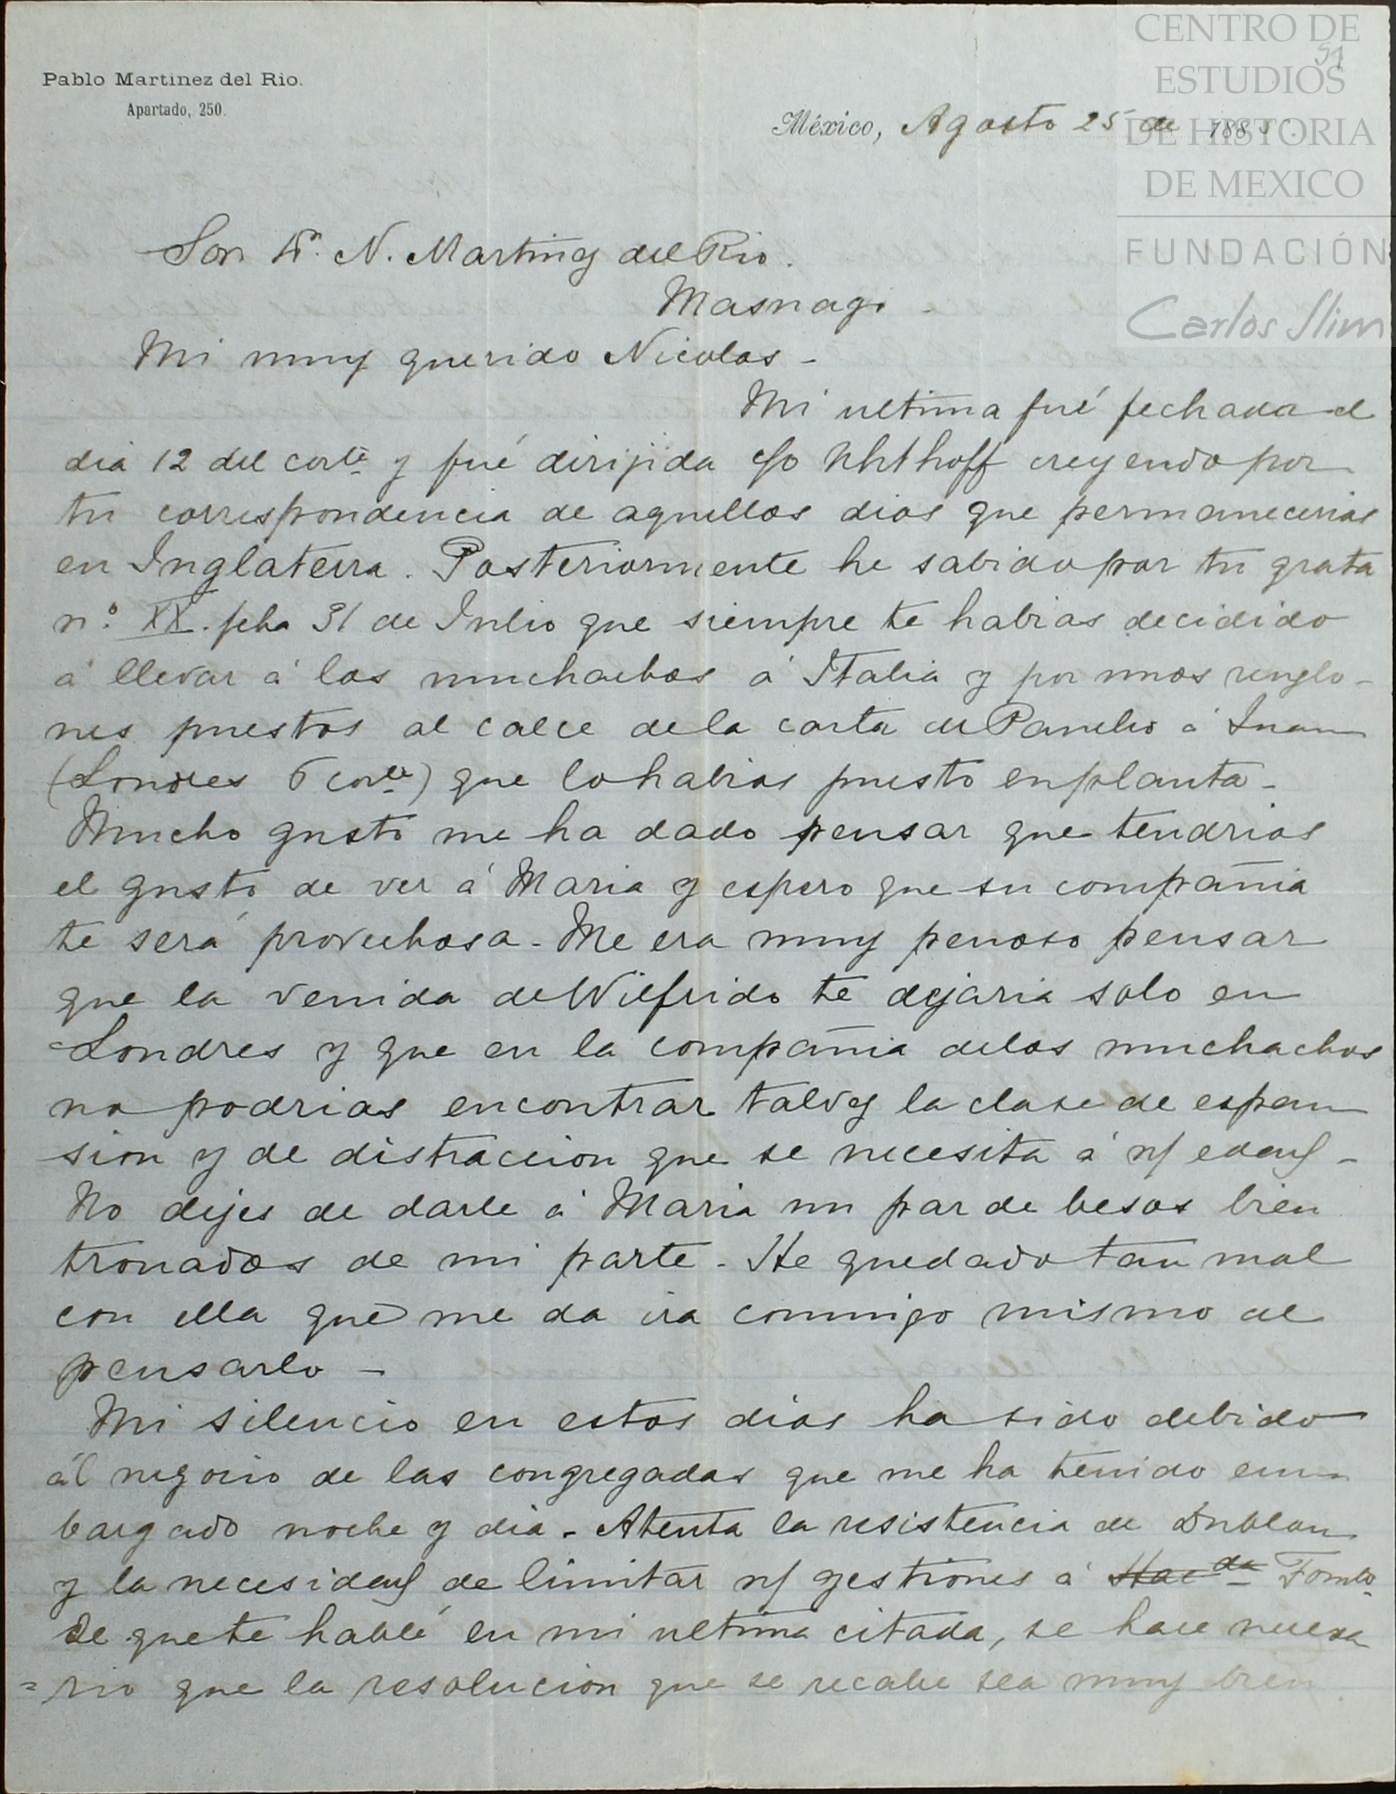 CENTRO DE
ESTUDIOS
DE HISTORIA
DE MEXICO
FUNDACIÓN
Carlos Slim
Pablo Martinez del Rio.
Apartado, 250.
México, Agosto 25 de 188
Sor Dn. N. Martinez del Rio.
Masnago.
Mi muy querido Nicolas -
Mi ultima fué fechada el
dia 12 del corte y fué dirijida c/o Uhthoff creyendo por
tu correspondencia de aquellos dias que permanecerias
en Inglaterra. Posteriormente he sabido por tu grata
n.º XX. fcha 31 de Julio que siempre te habias decidido
á llevar á los muchachos á Italia y por unos renglo-
nes puestos al calce de la carta de Pancho á Juan
(Londres 6 corte) que lo habias puesto en planta -
Mucho gusto me ha dado pensar que tendrias
el gusto de ver á Maria y espero que su compañia
te será provechosa - Me era muy penoso pensar
que la venida de Wilfrido te dejaria solo en
Londres y que en la compañia de los muchachos
no podrias encontrar talvez la clase de espan
sion y de distraccion que se necesita á n/ edad -
No dejes de darle á Maria un par de besos bien
tronados de mi parte - He quedado tan mal
con ella que me da ira conmigo mismo al
pensarlo -
Mi silencio en estos dias ha sido debido
ál negocio de las congregadas que me ha tenido em
bargado noche y dia - Atenta la resistencia de Dublan
y la necesidad de limitar n/ gestiones á Hacda Fomto
de que te hablé en mi ultima citada, se hace necesa
= rio que la resolucion que se recabe sea muy bien